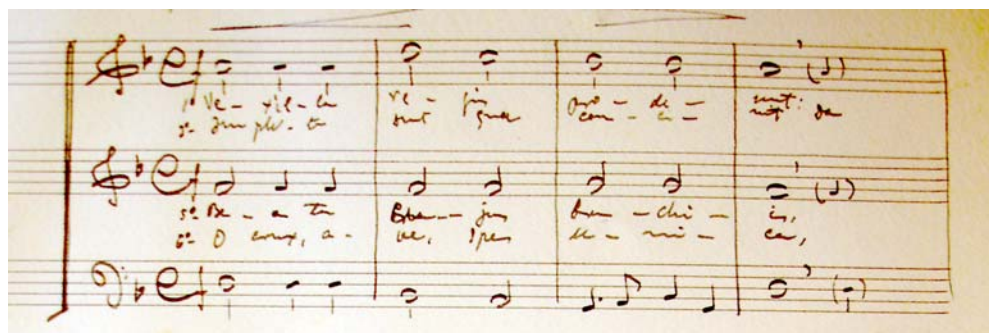 1ª Ve - xil - la re - gis pro - de - unt:
3ª Imple - ta sunt quae con - ci - nit Da
5ª Be - a ta cu - jus bra - chi - is,
6ª O crux, a - ve, spes u - ni - ca,